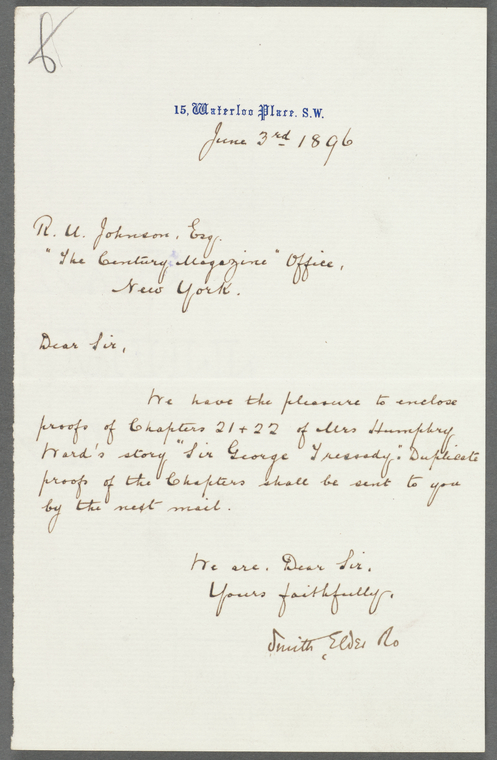 8
15, Waterloo Place. S.W.
June 3rd 1896
R. U. Johnson, Esq.
"The Century Magazine" Office,
New York.
Dear Sir,
We have the pleasure to enclose
proofs of Chapters 21 + 22 of Mrs Humphry
Ward's story "Sir George Tressady". Duplicate
proofs of the Chapters shall be sent to you
by the next mail.
We are. Dear Sir.
Yours faithfully.
Smith Elder &Co